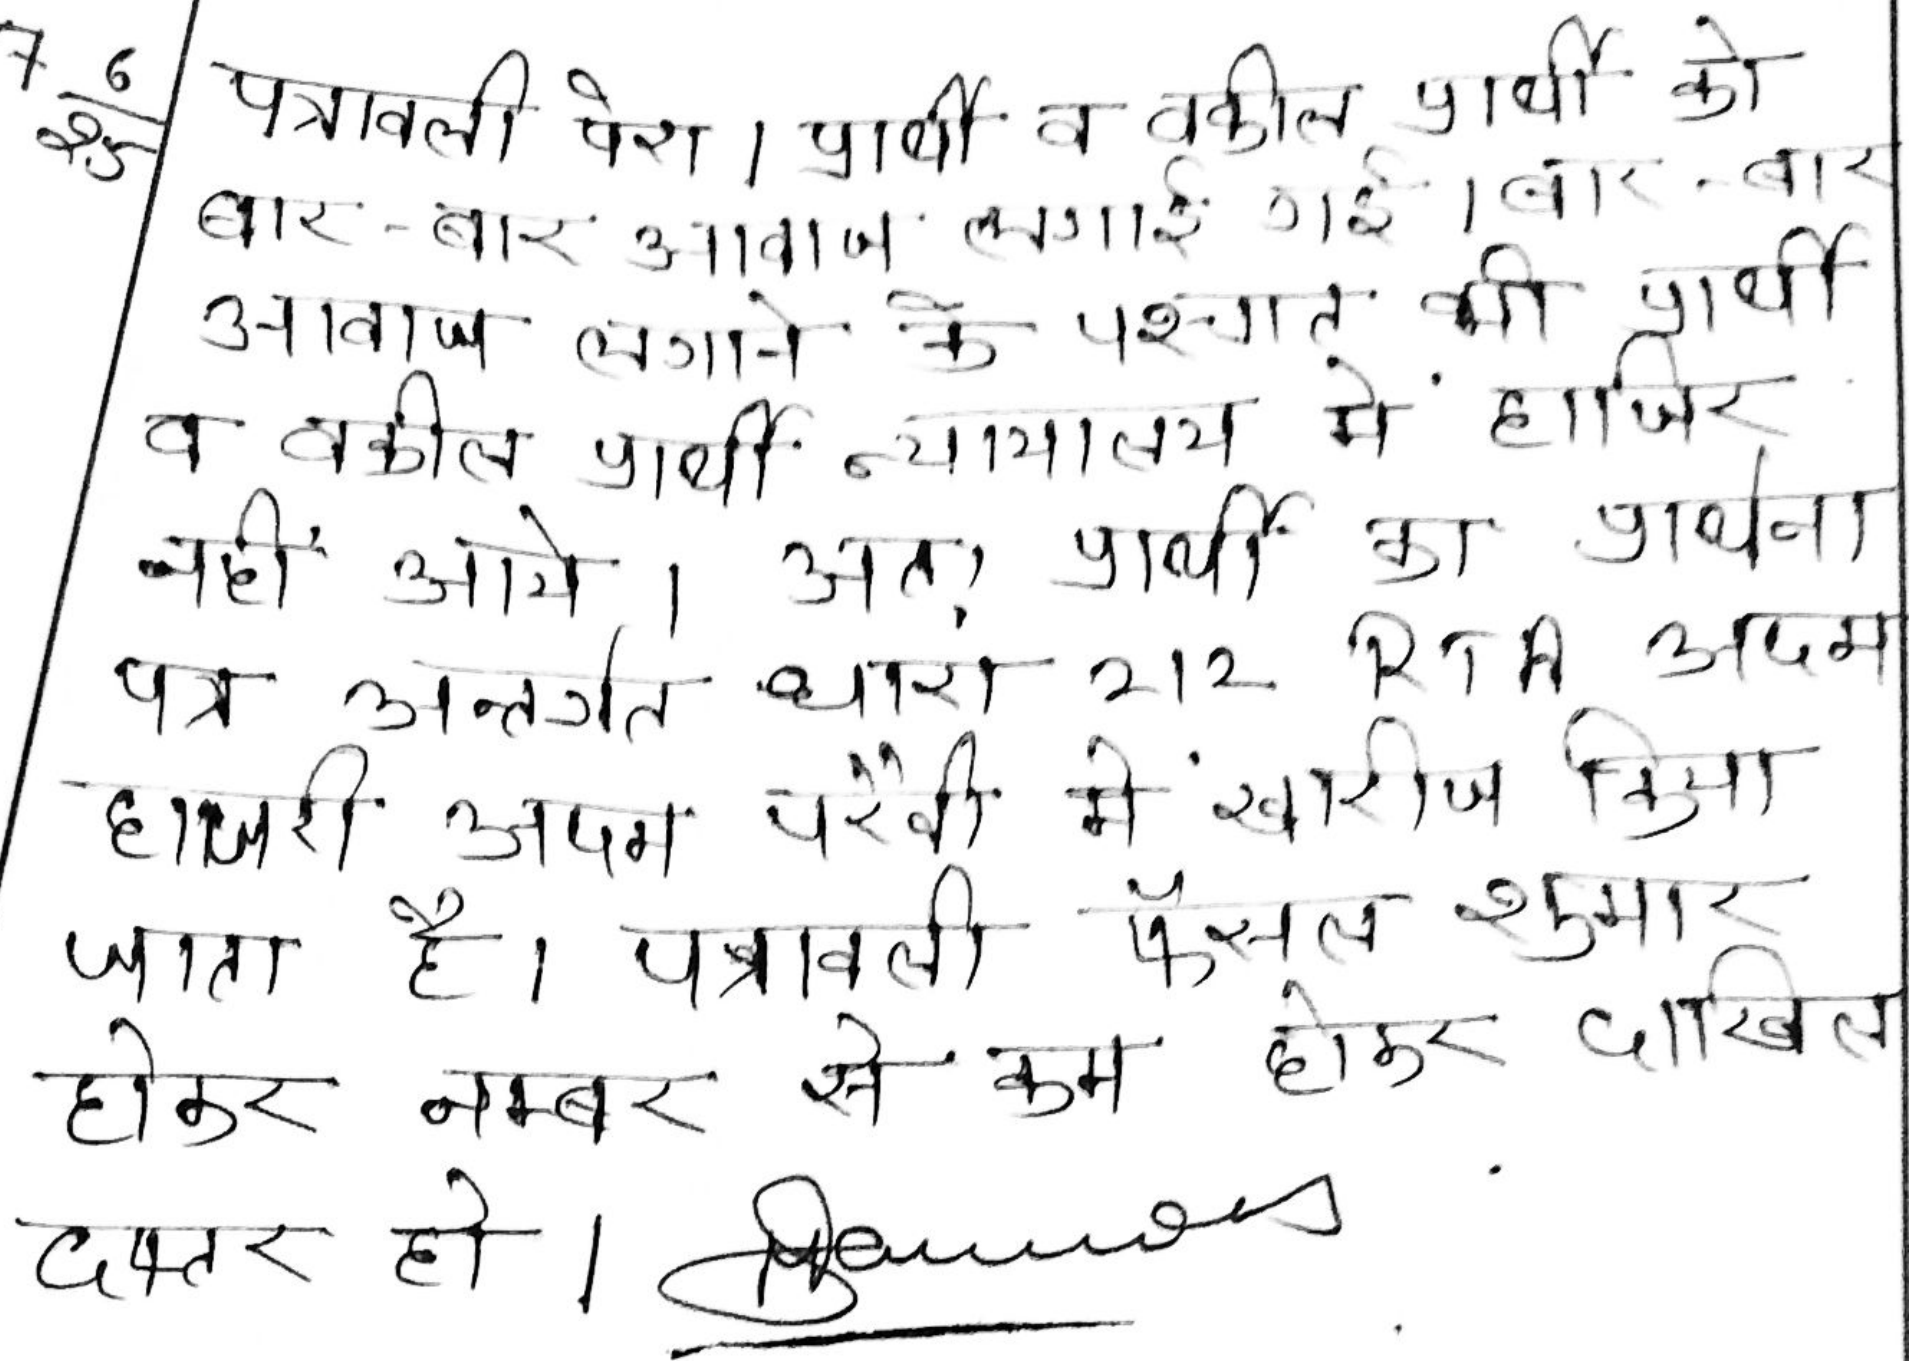 7 6
25
पत्रावली पेश। प्रार्थी व वकील प्रार्थी को
बार-बार आवाज लगाई गई। बार-बार
आवाज लगाने के पश्चात् भी प्रार्थी
व वकील प्रार्थी न्यायालय में हाजिर
नहीं आये। अतः प्रार्थी का प्रार्थना
पत्र अन्तर्गत धारा 212 RTA अदम
हाजरी अदम परैवी में खारीज किया
जाता है। पत्रावली फैसल शुमार
होकर नम्बर से कम होकर दाखिल
दफ्तर हो।